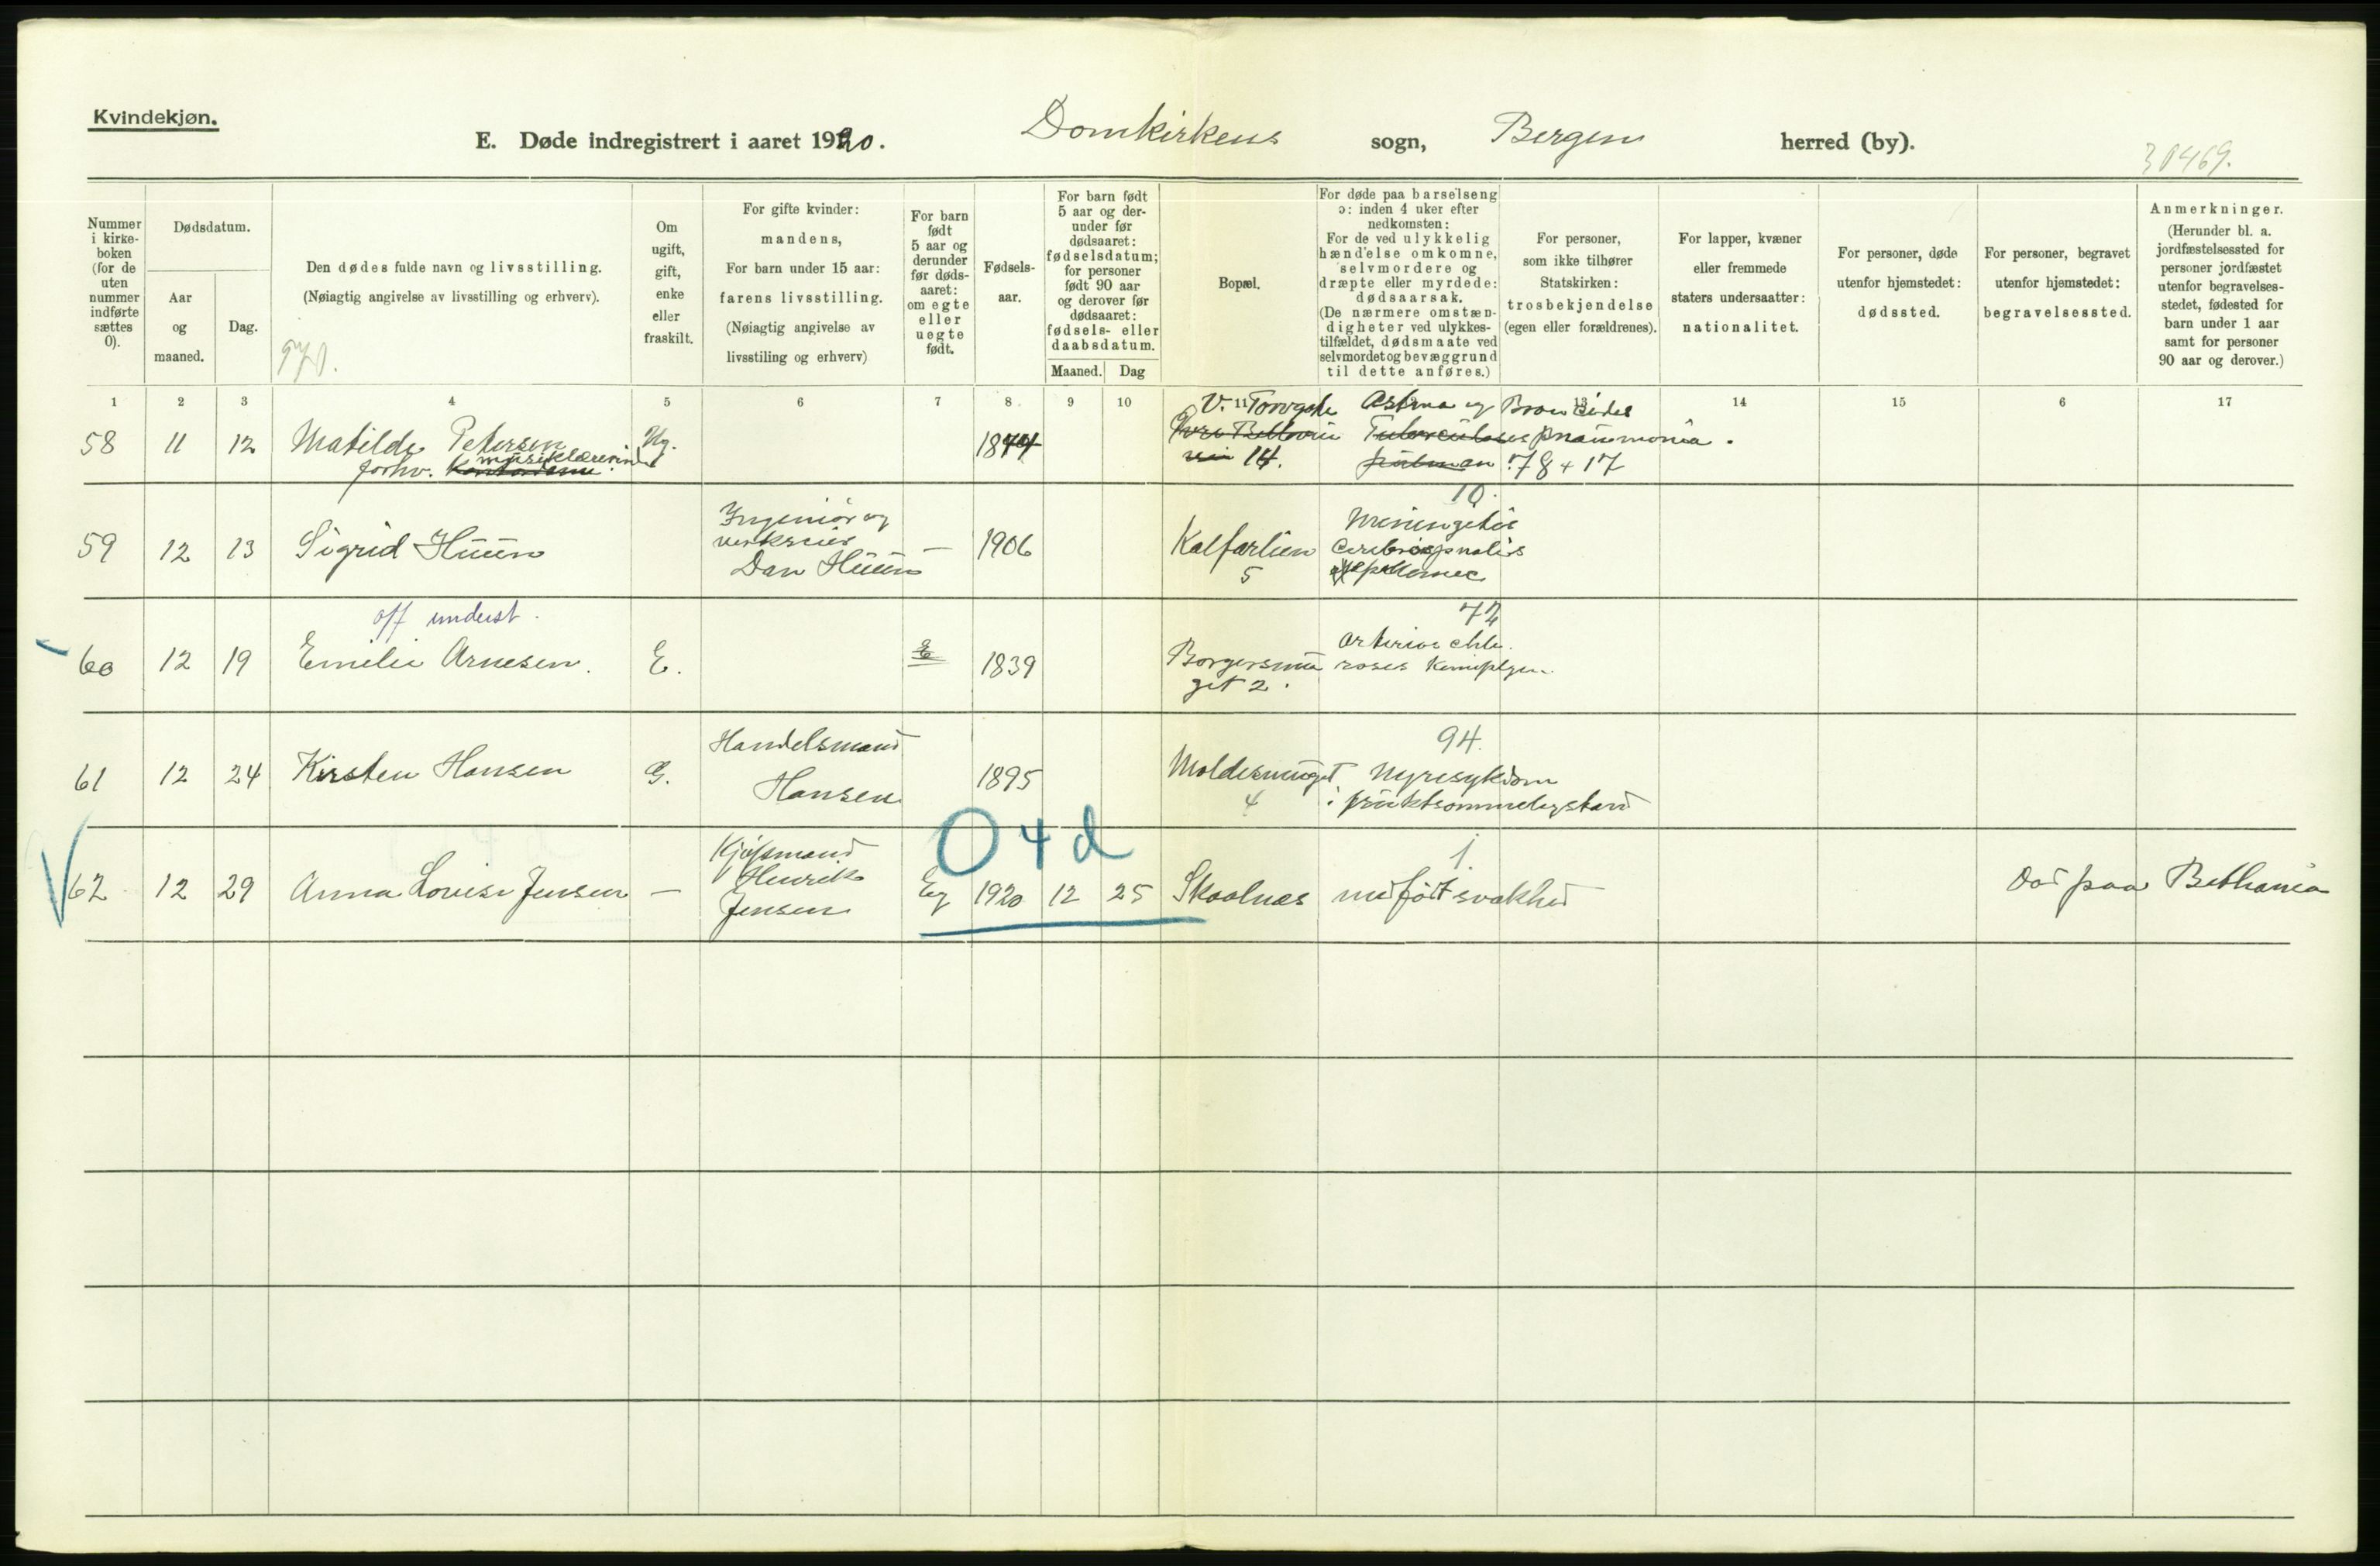 Kvindekjøn.
E. Døde indregistrert i aaret 1920. Domkirkens sogn, Bergen herred (by).
30469.
Nummer i kirke-boken (for de uten nummer indførte sættes 0).
Dødsdatum.
Aar og maaned.
Dag.
Den dødes fulde navn og livsstilling.
(Nøiagtig angivelse av livsstilling og erhverv).
970.
Om ugift, gift, enke eller fraskilt.
For gifte kvinder:
mandens,
For barn under 15 aar:
farens livsstilling.
(Nøiagtig angivelse av
livsstiling og erhverv)
For barn født 5 aar og derunder før døds-aaret: om egte eller uegte født.
Fødsels-aar.
For barn født 5 aar og der-under før dødsaaret: fødselsdatum; for personer født 90 aar og derover før dødsaaret: fødsels- eller daabsdatum.
Maaned. Dag
Bopæl.
For døde paa barselseng
ɔ: inden 4 uker efter
nedkomsten:
For de ved ulykkelig
hændelse omkomne,
selvmordere og
dræpte eller myrdede:
dødsaarsak.
(De nærmere omstæn-
digheter ved ulykkes-
tilfældet, dødsmaate ved
selvmordet og bevæggrund
til dette anføres.)
For personer,
som ikke tilhører
Statskirken:
trosbekjendelse
(egen eller forældrenes).
For lapper, kvæner
eller fremmede
staters undersaatter:
nationalitet.
For personer, døde
utenfor hjemstedet:
dødssted.
For personer, begravet
utenfor hjemstedet:
begravelsessted.
Anmerkninger.
(Herunder bl. a.
jordfæstelsessted for
personer jordfæstet
utenfor begravelses-
stedet, fødested for
barn under 1 aar
samt for personer
90 aar og derover.)
1 2 3 4 5 6 7 8 9 10 11 13 14 15 6 17
V. Torvgate Astma og
58 11 12 Matilde Petersen Ug. 1844 Tuberculoses pnaumonia.
forhv. musiklærerinde 14. 78 + 17
10.
59 12 13 Sigrid Huun Ingeniør og Dan Huun — 1906 Kalfarlien 5 Meningitis
epidemic
off underst.
74
60 12 19 Emilie Arnesen. E. E 1839 Borgersmuget 2.
94.
61 12 24 Kirsten Hansen G. Handelsmand Hansen 1895 Moldesmuget 4 Nyresykdom
i fruktsommeligstand
O 4 d
1.
62 12 29 Anna Lovise Jensen — Kjøpmand Henrik Jensen Eg 1920 12 25 Skoolnes medfødt svakhed Død paa Bethania